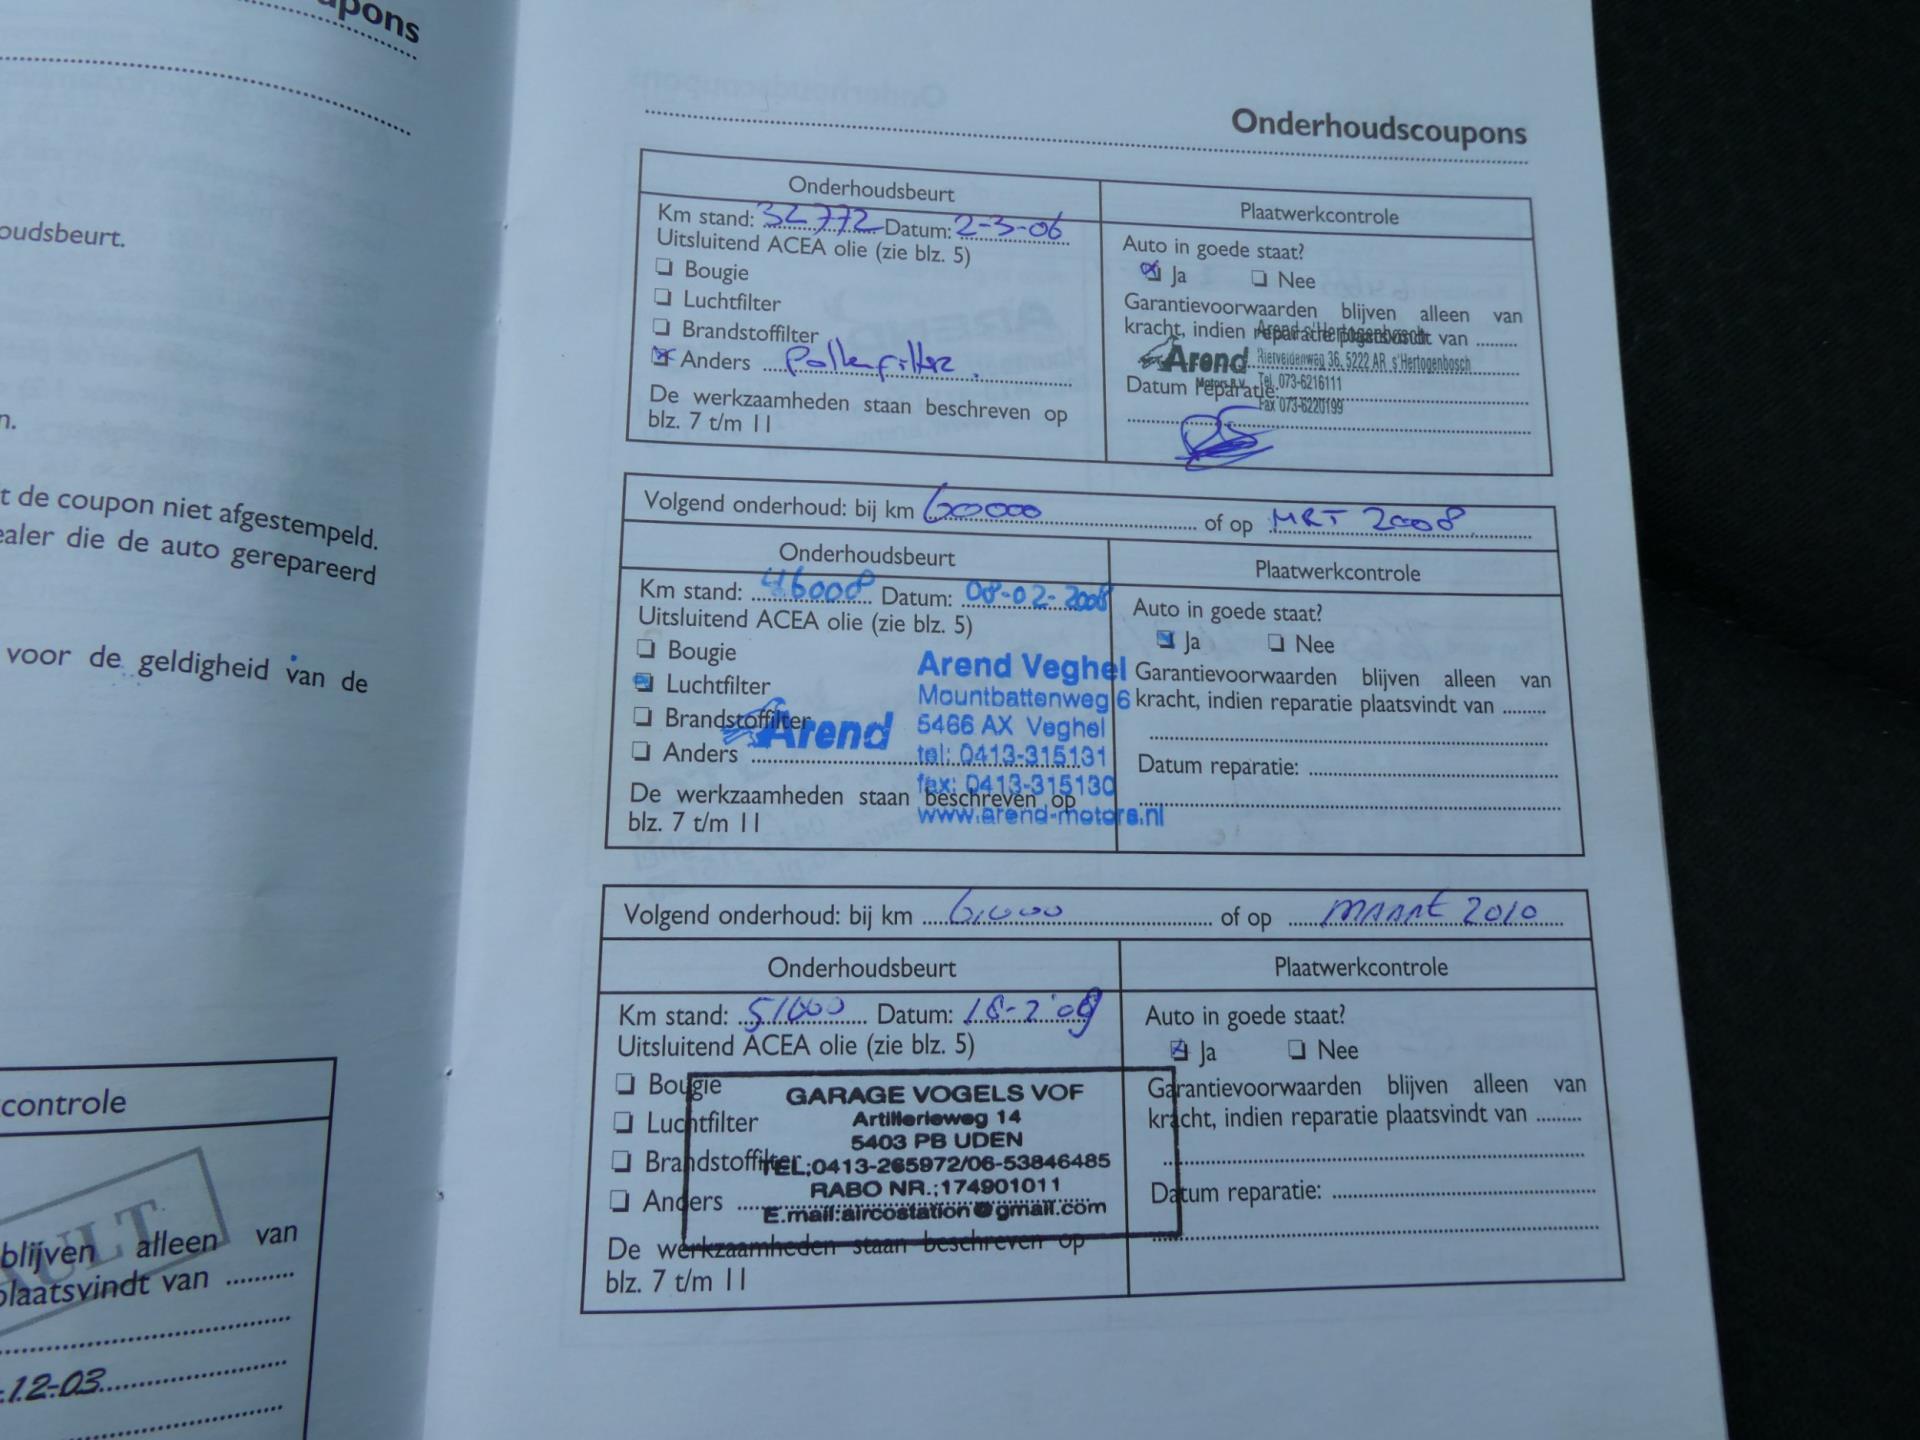 upons
oudsbeurt.
n.
t de coupon niet afgestempeld.
ealer die de auto gerepareerd
voor de geldigheid van de
controle
AULT
blijven alleen van
plaatsvindt van ..........
12-03
Onderhoudscoupons
Onderhoudsbeurt
Km stand: 32772 Datum: 2-3-06
Uitsluitend ACEA olie (zie blz. 5)
Bougie
Luchtfilter
Brandstoffilter
Anders Pollenfilter.
De werkzaamheden staan beschreven op
blz. 7 t/m 11
Plaatwerkcontrole
Auto in goede staat?
Ja Nee
Garantievoorwaarden blijven alleen van
kracht, indien reparatie plaatsvindt van ........
Datum reparatie:
Arend
Motors B.V.
Arend s'Hertogenbosch
Rietveldenweg 36, 5222 AR s'Hertogenbosch
Tel. 073-6216111
Fax 073-6220199
Volgend onderhoud: bij km 60000 of op MRT 2008
Onderhoudsbeurt
Km stand: 46008 Datum: 08-02-2008
Uitsluitend ACEA olie (zie blz. 5)
Bougie
Luchtfilter
Brandstoffilter
Anders
De werkzaamheden staan beschreven op
blz. 7 t/m 11
Arend
Arend Veghel
Mountbattenweg 6
5466 AX Veghel
tel: 0413-315131
fax: 0413-315130
www.arend-motors.nl
Plaatwerkcontrole
Auto in goede staat?
Ja Nee
Garantievoorwaarden blijven alleen van
kracht, indien reparatie plaatsvindt van ........
Datum reparatie:
Volgend onderhoud: bij km of op maart 2010
Onderhoudsbeurt
Km stand: 51000 Datum: 18-2'09
Uitsluitend ACEA olie (zie blz. 5)
Bougie
Luchtfilter
Brandstoffilter
Anders
De werkzaamheden staan beschreven op
blz. 7 t/m 11
GARAGE VOGELS VOF
Artillerieweg 14
5403 PB UDEN
TEL:0413-265972/06-53846485
RABO NR.:174901011
E.mail:aircostation@gmail.com
Plaatwerkcontrole
Auto in goede staat?
Ja Nee
Garantievoorwaarden blijven alleen van
kracht, indien reparatie plaatsvindt van ........
Datum reparatie: